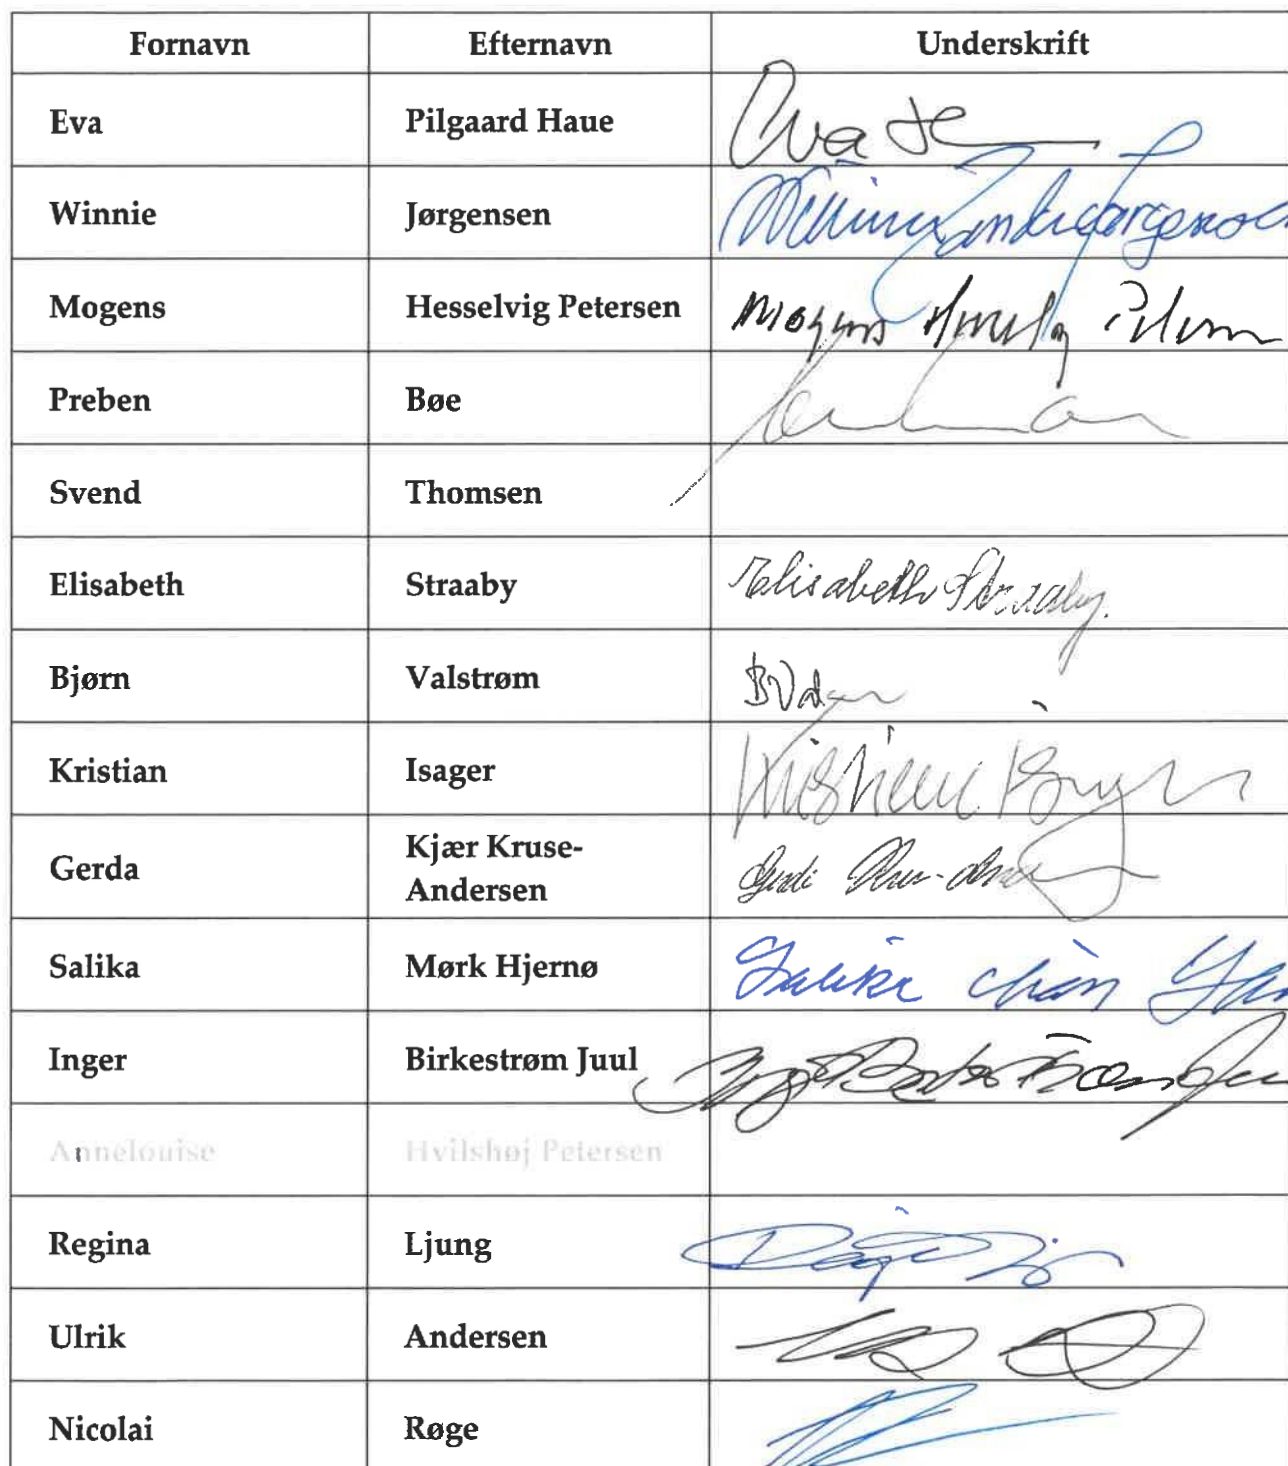 Fornavn Efternavn Underskrift
Eva Pilgaard Haue Eva
Winnie Jørgensen
Mogens Hesselvig Petersen Mogens
Preben Bøe
Svend Thomsen
Elisabeth Straaby Elisabeth Straaby.
Bjørn Valstrøm
Kristian Isager Kristian
Gerda Kjær Kruse-
Andersen
Salika Mørk Hjernø Salika
Inger Birkestrøm Juul
Annelouise Hvilshøj Petersen
Regina Ljung
Ulrik Andersen
Nicolai Røge